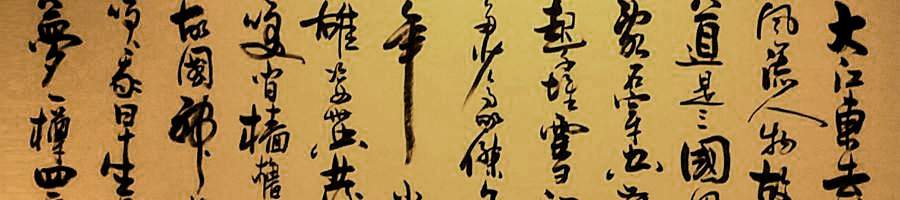 大江東去
風流人物故
道是三國周
亂石
起千堆雪江
多少豪傑
年
雄姿英發
笑間檣櫓
故國神
笑我早生
夢一樽